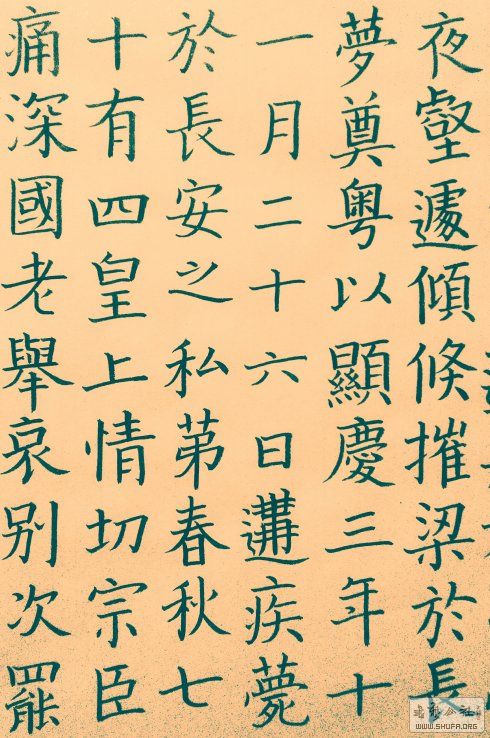 夜壑遽傾倏摧梁於長
夢奠粤以顯慶三年十
一月二十六日遘疾薨
於長安之私苐春秋七
十有四皇上情切宗臣
痛深國老舉哀别次罷
WWW.SHUFA.ORG